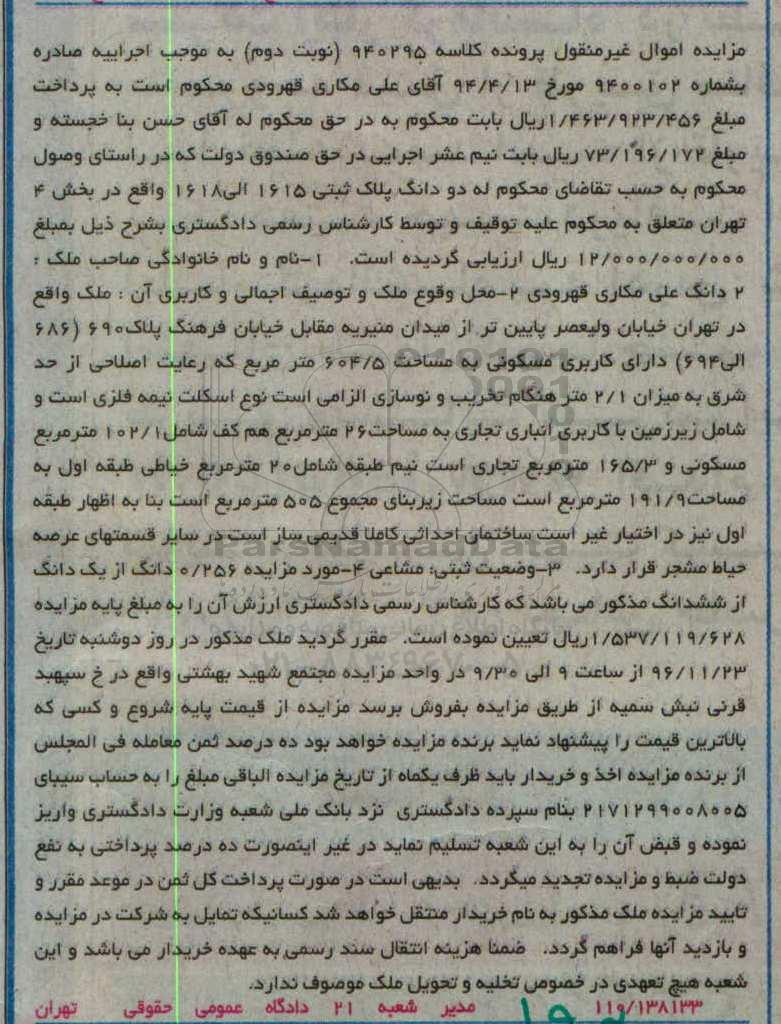 مزایده اموال غیرمنقول پرونده کلاسه ۹۴۰۲۹۵ (نوبت دوم) به موجب اجراییه صادره
بشماره ۹۴۰۰۱۰۲ مورخ ۹۴/۴/۱۳ آقای علی مکاری قهرودی محکوم است به پرداخت
مبلغ ۱/۴۶۳/۹۲۳/۴۵۶ریال بابت محکوم به در حق محکوم له آقای حسن بنا خجسته و
مبلغ ۷۳/۱۹۶/۱۷۲ ریال بابت نیم عشر اجرایی در حق صندوق دولت که در راستای وصول
محکوم به حسب تقاضای محکوم له دو دانگ پلاک ثبتی ۱۶۱۵ الی۱۶۱۸ واقع در بخش ۴
تهران متعلق به محکوم علیه توقیف و توسط کارشناس رسمی دادگستری بشرح ذیل بمبلغ
۱۲/۰۰۰/۰۰۰/۰۰۰ ریال ارزیابی گردیده است. ۱-نام و نام خانوادگی صاحب ملک :
۲ دانگ علی مکاری قهرودی ۲-محل وقوع ملک و توصیف اجمالی و کاربری آن : ملک واقع
در تهران خیابان ولیعصر پایین تر از میدان منیریه مقابل خیابان فرهنگ پلاک۶۹۰ (۶۸۶
الی۶۹۴) دارای کاربری مسکونی به مساحت ۶۰۴/۵ متر مربع که رعایت اصلاحی از حد
شرق به میزان ۲/۱ متر هنگام تخریب و نوسازی الزامی است نوع اسکلت نیمه فلزی است و
شامل زیرزمین با کاربری انباری تجاری به مساحت۲۶ مترمربع هم کف شامل۱۰۲/۱ مترمربع
مسکونی و ۱۶۵/۳ مترمربع تجاری است نیم طبقه شامل۲۰ مترمربع خیاطی طبقه اول به
مساحت۱۹۱/۹ مترمربع است مساحت زیربنای مجموع ۵۰۵ مترمربع است بنا به اظهار طبقه
اول نیز در اختیار غیر است ساختمان احداثی کاملا قدیمی ساز است در سایر قسمتهای عرصه
حیاط مشجر قرار دارد. ۳-وضعیت ثبتی: مشاعی ۴-مورد مزایده ۰/۲۵۶ دانگ از یک دانگ
از ششدانگ مذکور می باشد که کارشناس رسمی دادگستری ارزش آن را به مبلغ پایه مزایده
۱/۵۳۷/۱۱۹/۶۲۸ریال تعیین نموده است. مقرر گردید ملک مذکور در روز دوشنبه تاریخ
۹۶/۱۱/۲۳ از ساعت ۹ الی ۹/۳۰ در واحد مزایده مجتمع شهید بهشتی واقع در خ سپهبد
قرنی نبش سمیه از طریق مزایده بفروش برسد مزایده از قیمت پایه شروع و کسی که
بالاترین قیمت را پیشنهاد نماید برنده مزایده خواهد بود ده درصد ثمن معامله فی المجلس
از برنده مزایده اخذ و خریدار باید ظرف یکماه از تاریخ مزایده الباقی مبلغ را به حساب سیبای
۲۱۷۱۲۹۹۰۰۸۰۰۵ بنام سپرده دادگستری نزد بانک ملی شعبه وزارت دادگستری واریز
نموده و قبض آن را به این شعبه تسلیم نماید در غیر اینصورت ده درصد پرداختی به نفع
دولت ضبط و مزایده تجدید میگردد. بدیهی است در صورت پرداخت کل ثمن در موعد مقرر و
تایید مزایده ملک مذکور به نام خریدار منتقل خواهد شد کسانیکه تمایل به شرکت در مزایده
و بازدید آنها فراهم گردد. ضمنا هزینه انتقال سند رسمی به عهده خریدار می باشد و این
شعبه هیچ تعهدی در خصوص تخلیه و تحویل ملک موصوف ندارد.
۱۱۰/۱۳۸۱۳۳ مدیر شعبه ۲۱ دادگاه عمومی حقوقی تهران
ParsNamadData